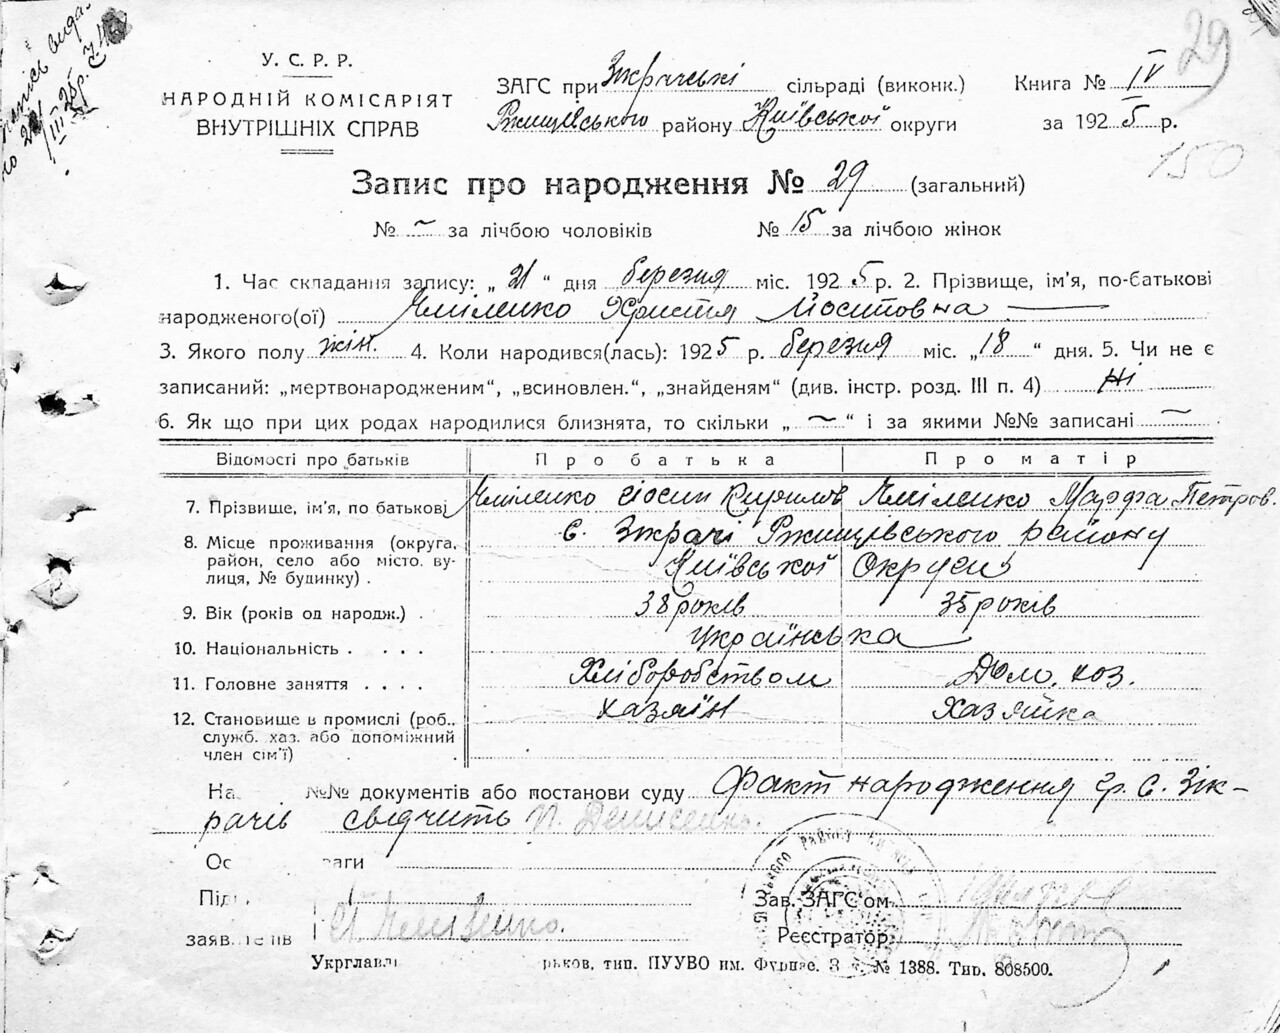 29
150
У. С. Р. Р.
НАРОДНІЙ КОМІСАРІЯТ
ВНУТРІШНІХ СПРАВ
ЗАГС при Зікрачські сільраді (виконк.)
Ржищівського району Київської округи
Книга № IV
за 1925 р.
Запис про народження № 29 (загальний)
№ — за лічбою чоловіків № 15 за лічбою жінок
1. Час складання запису: „21“ дня березня міс. 1925 р. 2. Прізвище, ім'я, по-батькові
народженого(ої) Хміленко Христя Йосиповна
3. Якого полу жін. 4. Коли народився(лась): 1925 р. березня міс. „18“ дня. 5. Чи не є
записаний: „мертвонародженим“, „всиновлен.“, „знайденям“ (див. інстр. розд. III п. 4) Ні
6. Як що при цих родах народилися близнята, то скільки „—“ і за якими №№ записані —
Відомості про батьків Про батька Про матір
7. Прізвище, ім'я, по батькові Хміленко Йосип Кирилов Хміленко Марфа Петров.
8. Місце проживання (округа, с. Зікрачі Ржищівського району
район, село або місто, ву- Київської Округи
лиця, № будинку) .
9. Вік (років од народж.) . 38 років 35 років
10. Національність . . . . Українська
11. Головне заняття . . . . Хліборобством Дом. хоз.
12. Становище в промислі (роб., хазяїн Хазяйка
служб. хаз. або допоміжний
член сім'ї)
На №№ документів або постанови суду Факт народження гр. с. Зік-
рачів свідчить
Ос ваги
Під Зав. ЗАГС'ом
заяв Реєстратор
Укрглавл рьков, тип. ПУУВО им. Фрунзе. З. № 1388. Тир. 808500.